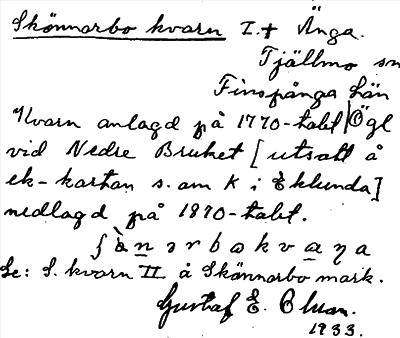 Skönnarbo kvarn I. + Änga.
Tjällmo sn
Finspånga Län
Kvarn anlagd på 1770-talet Ögl
vid Nedre Bruket [utsatt å
ek-kartan s. am K i Eklunda]
nedlagd på 1870-talet.
ʃ ö̀ n ə r b ω k v a ŋ a
Se: S. kvarn II å Skönnarbo mark.
Gustaf E.
1933.